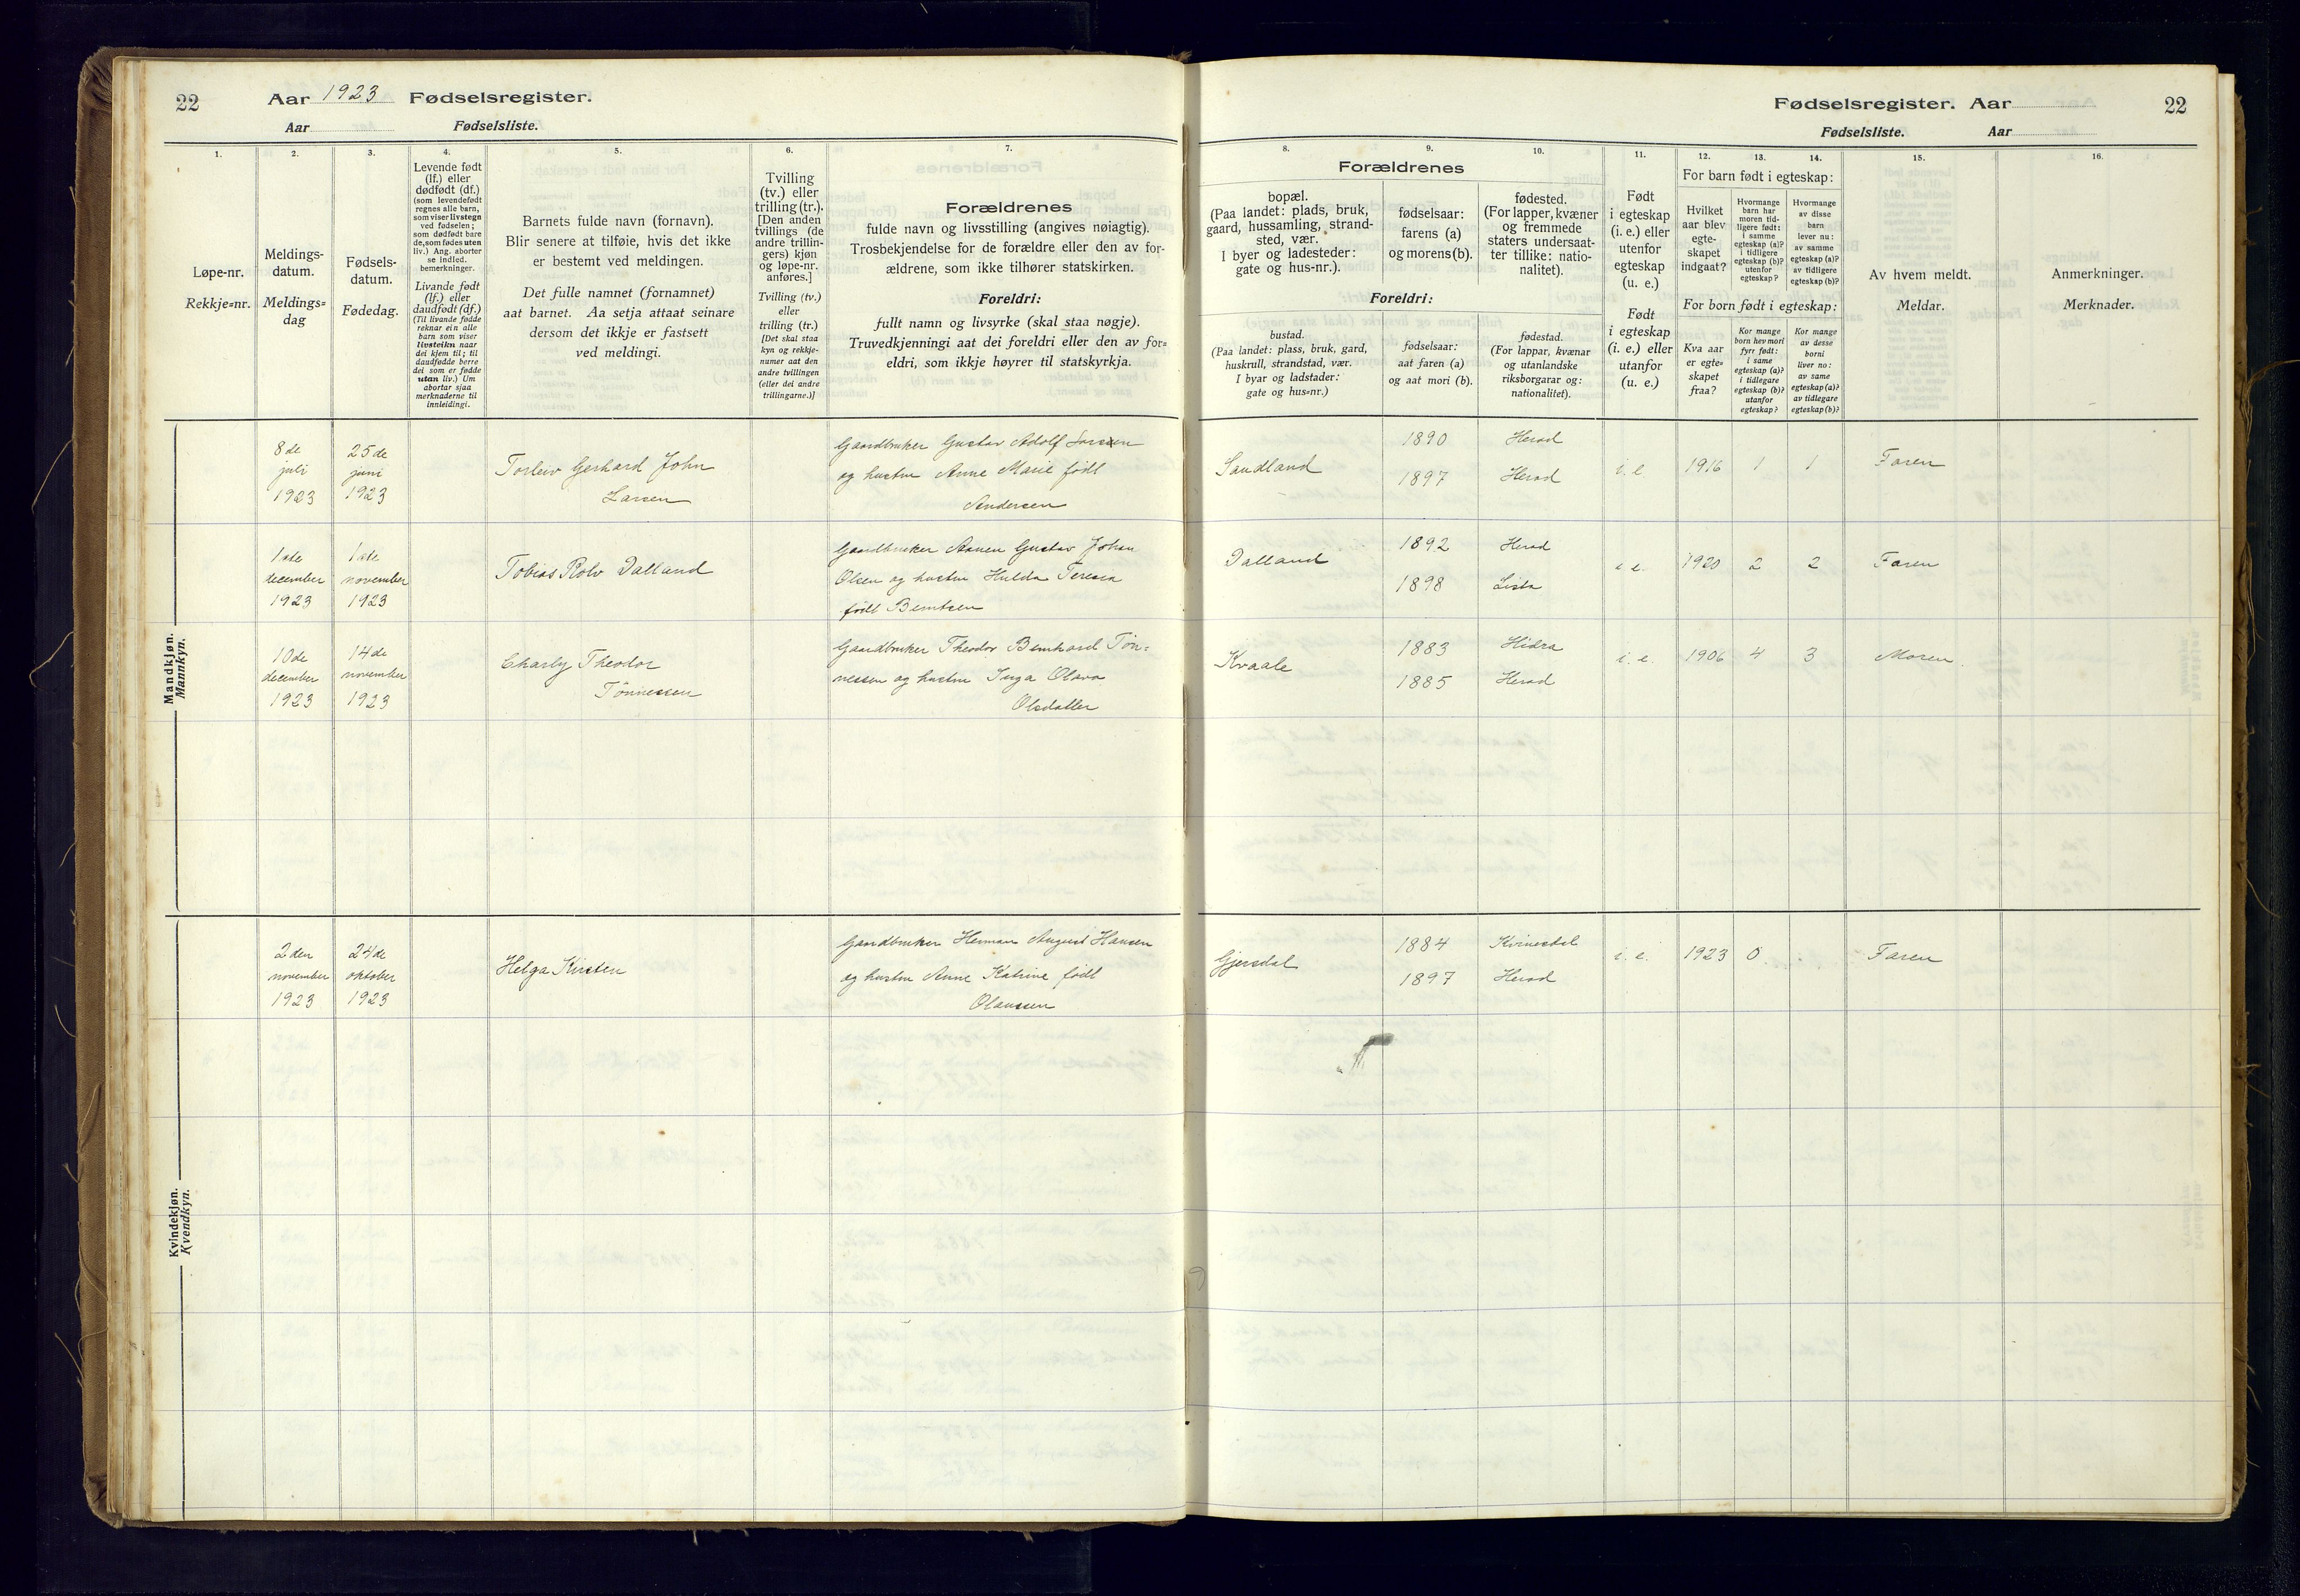 22
Aar 1923 Fødselsregister.
Aar Fødselsliste.
1.
Løpe-nr.
Rekkje=nr.
2.
Meldings-
datum.
Meldings=
dag
3.
Fødsels-
datum.
Fødedag.
4.
Levende født
(lf.) eller
dødfødt (df.)
(som levendefødt
regnes alle barn,
som viser livstegn
ved fødselen;
som dødfødt bare
de, som fødes uten
liv.) Ang. aborter
se indled.
bemerkninger.
Livande født
(lf.) eller
daudfødt (df.)
(Til livande fødde
reknar ein alle
barn som viser
livsteikn naar
dei kjem til; til
daudfødde berre
dei som er fødde
utan liv.) Um
abortar sjaa
merknaderne til
innleidingi.
5.
Barnets fulde navn (fornavn).
Blir senere at tilføie, hvis det ikke
er bestemt ved meldingen.
Det fulle namnet (fornamnet)
aat barnet. Aa setja attaat seinare
dersom det ikkje er fastsett
ved meldingi.
6.
Tvilling
(tv.) eller
trilling (tr.).
[Den anden
tvillings (de
andre trillin-
gers) kjøn
og løpe-nr.
anføres.]
Tvilling (tv.)
eller
trilling (tr.)
[Det skal staa
kyn og rekkje-
numer aat den
andre tvillingen
(eller dei andre
trillingarne.)]
7.
Forældrenes
fulde navn og livsstilling (angives nøiagtig).
Trosbekjendelse for de forældre eller den av for-
ældrene, som ikke tilhører statskirken.
Foreldri:
fullt namn og livsyrke (skal staa nøgje).
Truvedkjenningi aat dei foreldri eller den av for=
eldri, som ikkje høyrer til statskyrkja.
Mandkjøn.
Mannkyn.
8de
juli
1923
25de
juni
1923
Torleiv Gerhard John
Larsen
Gaardbruker Gustav Adolf Larsen
og hustru Anne Marie født
Andersen
1ste
december
1923
1ste
november
1923
Tobias Rolv Dalland
Gaardbruker Aanen Gustav Johan
Olsen og hustru Hulda Teresia
født Berntsen
10de
december
1923
14de
november
1923
Charly Theodor
Tønnessen
Gaardbruker Theodor Bernhard Tøn=
nessen og hustru Inga Olava
Olsdatter
Kvindekjøn.
Kvendkyn.
2den
november
1923
24de
oktober
1923
Helga Kirsten
Gaardbruker Herman August Hansen
og hustru Anne Katrine født
Olaussen
Fødselsregister. Aar
22
Fødselsliste. Aar
8.
Forældrenes
bopæl.
(Paa landet: plads, bruk,
gaard, hussamling, strand-
sted, vær.
I byer og ladesteder:
gate og hus-nr.).
Foreldri:
bustad.
(Paa landet: plass, bruk, gard,
huskrull, strandstad, vær.
I byar og ladstader:
gate og hus=nr.)
9.
fødselsaar:
farens (a)
og morens(b).
fødselsaar:
aat faren (a)
og aat mori (b).
10.
fødested.
(For lapper, kvæner
og fremmede
staters undersaat-
ter tillike: natio-
nalitet).
fødestad.
(For lappar, kvænar
og utanlandske
riksborgarar og:
nationalitet).
11.
Født
i egteskap
(i. e.) eller
utenfor
egteskap
(u. e.)
Født
i egteskap
(i. e.) eller
utanfor
(u. e.)
12.
13.
14.
For barn født i egteskap:
Hvilket
aar blev
egte-
skapet
indgaat?
Hvormange
barn har
moren tid-
ligere født:
i samme
egteskap (a)?
i tidligere
egteskap (b)?
utenfor
egteskap?
Hvormange
av disse
barn
lever nu:
av samme
egteskap (a)?
av tidligere
egteskap (b)?
For born født i egteskap:
Kva aar
er egte=
skapet
fraa?
Kor mange
born hev mori
fyrr født:
i same
egteskap (a)?
i tidlegare
egteskap (b)?
utanfor
egteskap?
Kor mange
av desse
borni
liver no:
av same
egteskap (a)?
av tidlegare
egteskap (b)?
15.
Av hvem meldt.
Meldar.
16.
Anmerkninger.
Merknader.
Sandland
1890
1897
Herad
Herad
i. e.
1916
1
1
Faren
Dalland
1892
1898
Herad
Lista
i e.
1920
2
2
Faren
Kvaale
1883
1885
Hidra
Herad
i. e.
1906
4
3
Moren
Gjersdal
1884
1897
Kvinesdal
Herad
i. e.
1923
0
Faren